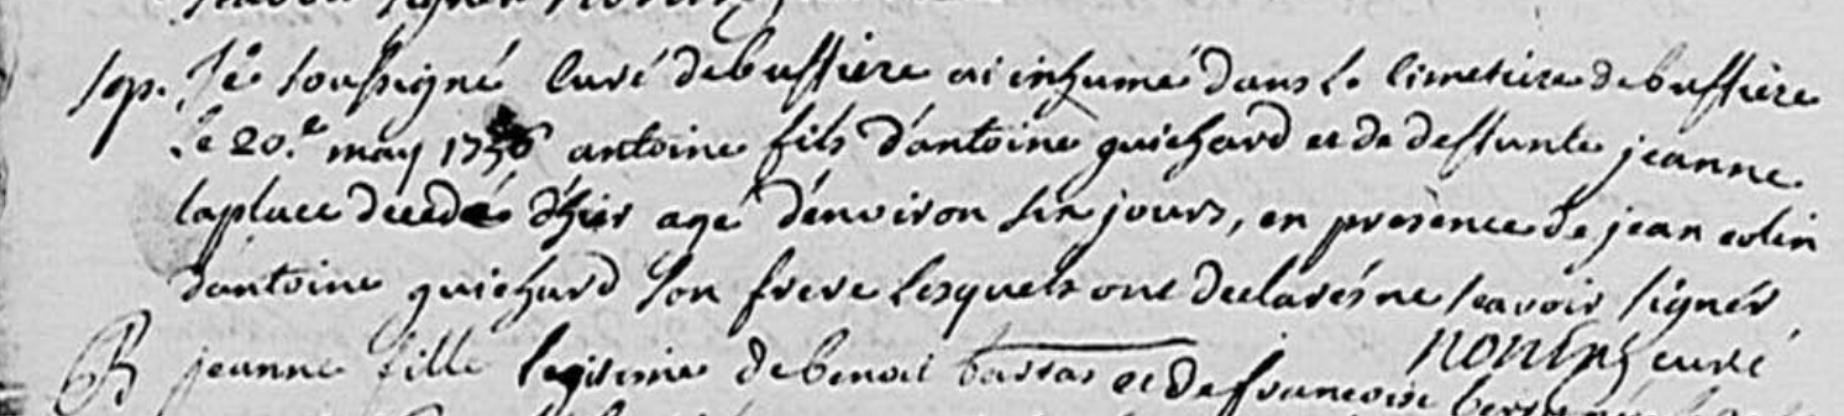 sep. Je soussigné curé de bussiere ai inhumé dans le cimetiere de bussiere
le 20.e may 1756 antoine fils d'antoine guichard et de deffunte jeanne
laplace decedé d'hier agé d'environ six jours, en presence de jean colin
d'antoine guichard son frere lesquels ont declarés ne scavoir signér
curé
B jeanne fille legitime de benoit barras et de francoise